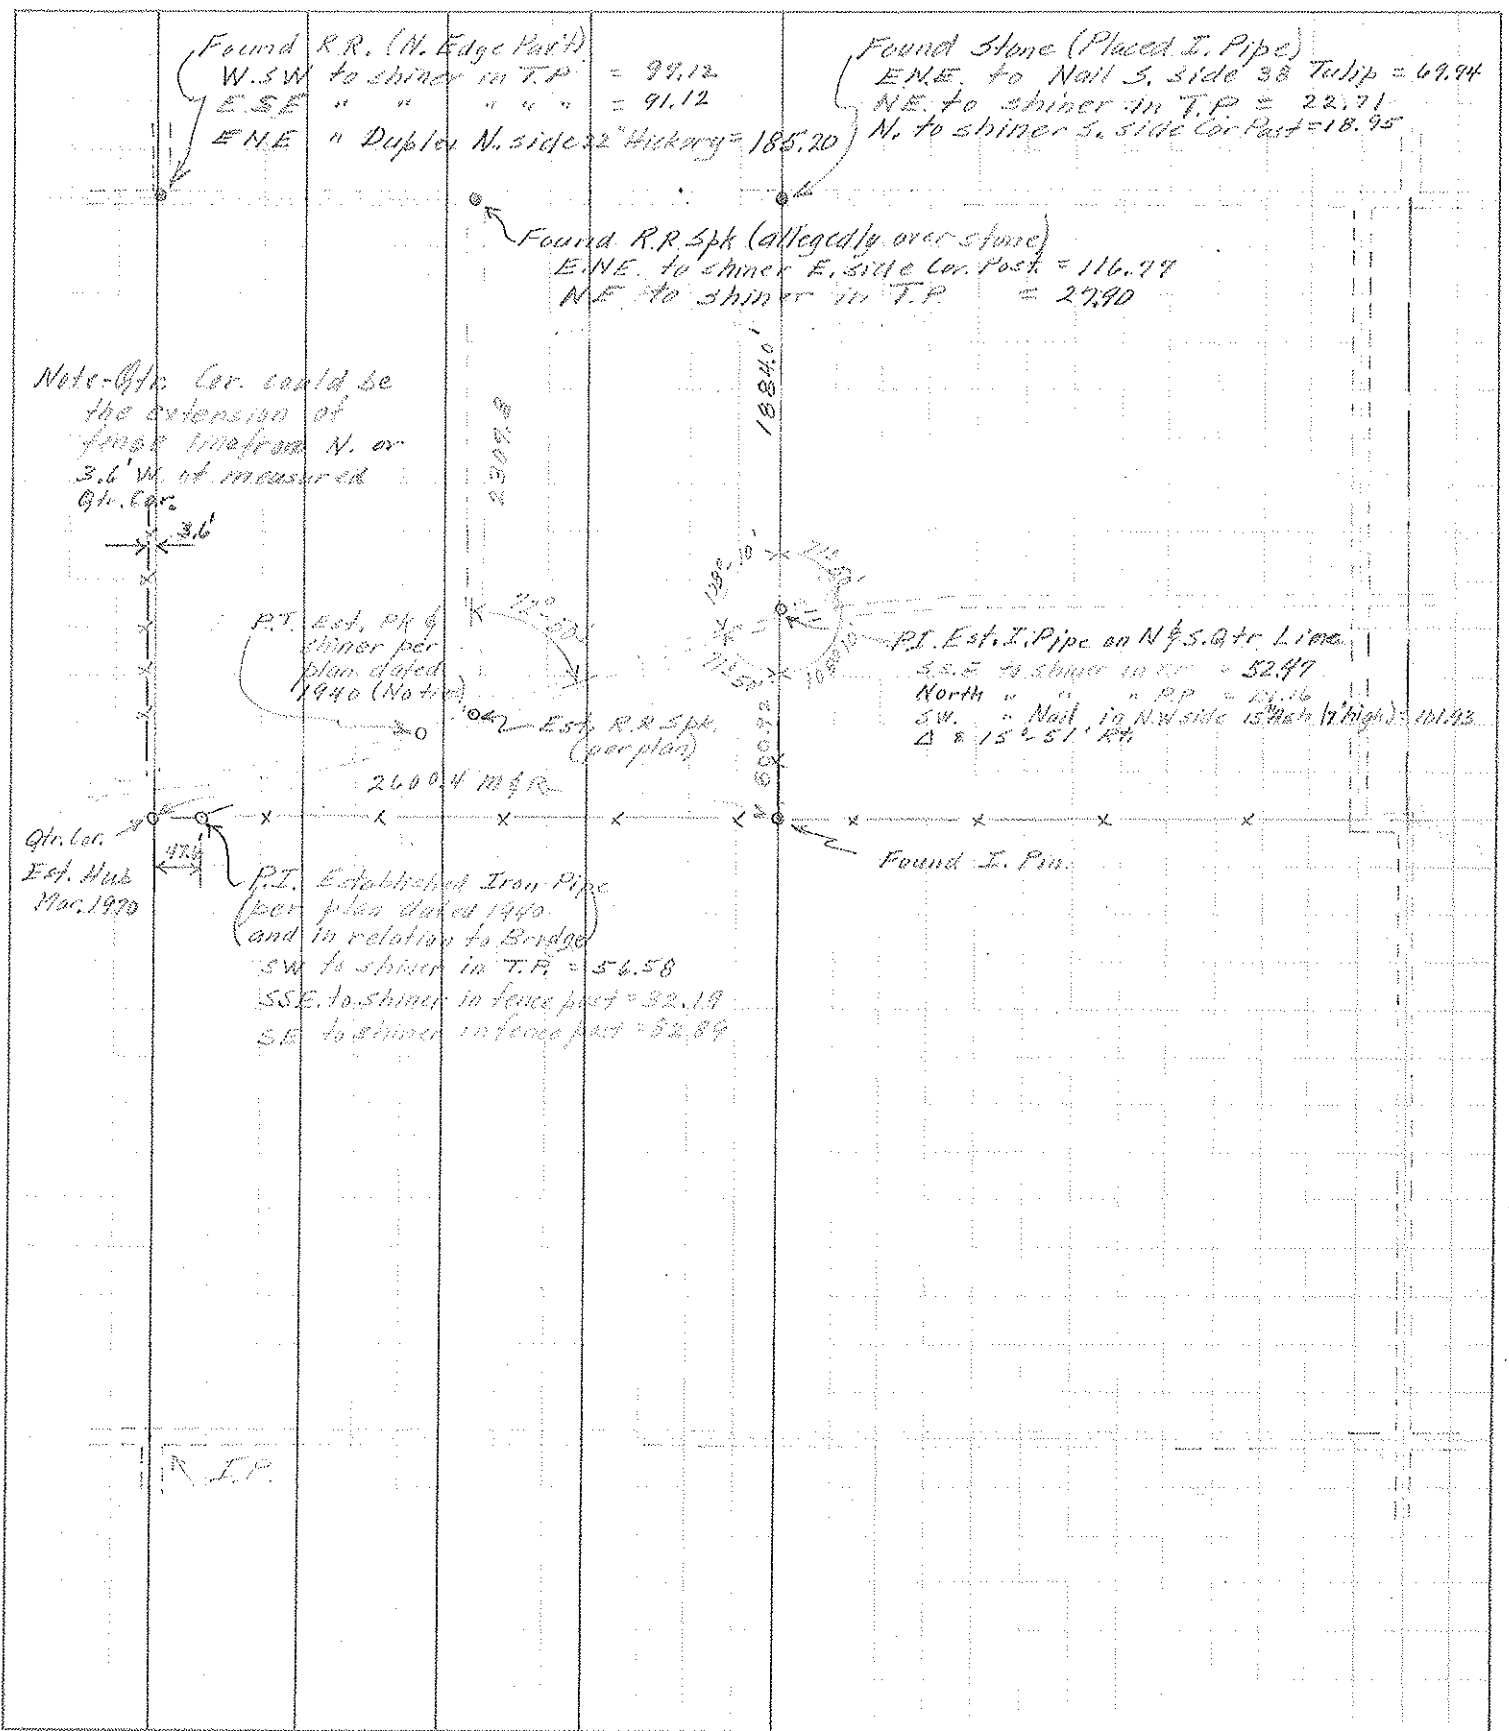 Found R.R. (N. Edge Pav't)
W.SW to shiner in T.P. = 97.12
E.SE " " " " " = 91.12
E.N.E " Duplex N. side 22" Hickory = 185.20
Found Stone (Placed I. Pipe)
E.N.E. to Nail S. side 38 Tulip = 69.94
NE. to shiner in T.P. = 22.71
N. to shiner S. side Cor. Post = 18.95
Found R.R. Spk (allegedly over stone)
E.NE. to shiner E. side Cor. Post = 116.77
NE to shiner in T.P. = 27.90
1884.0'
Note-Qtr. Cor. could be
the extension of
fence line from N. or
3.6' W. of measured
Qtr. Cor.
3.6'
P.T. Est. Pk &
shiner per
plan dated
1940
Est. R.R. Spk.
(per plan)
P.I. Est. I. Pipe on N & S. Qtr Line
S.S.E to shiner in = 52.47
North " " " P.P. =
SW. " Nail in N.W side 15" Ash (7' high) = 101.93
Δ = 15°-51' Rt.
2600.4 M & R
Qtr. Cor.
Est. Hub
Mar. 1970
47.6
P.I. Established Iron Pipe
(per plan dated 1940
and in relation to Bridge)
SW to shiner in T.P. = 56.58
SSE. to shiner in fence post = 32.19
SE to shiner in fence post = 52.89
Found I. Pin.
I.P.